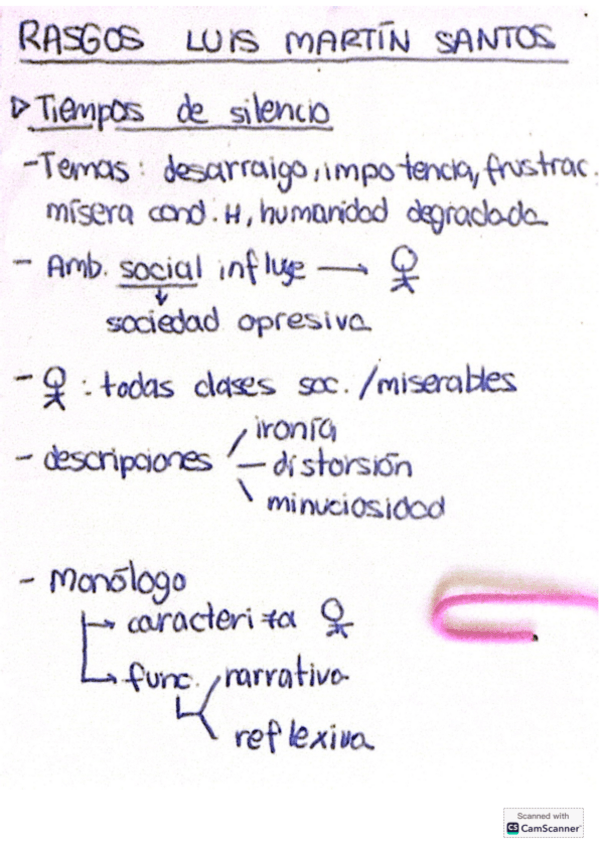 RASGOS LUIS MARTÍN SANTOS
Tiempos de silencio
-Temas: desarraigo, impotencia, frustrac.
mísera cond. H, humanidad degradada
- Amb. social influye →
sociedad opresiva
- : todas clases soc. /miserables
ironía
- descripciones - distorsión
minuciosidad
- Monólogo
→ caracteriza
→ func. narrativa
reflexiva
Scanned with
CS CamScanner